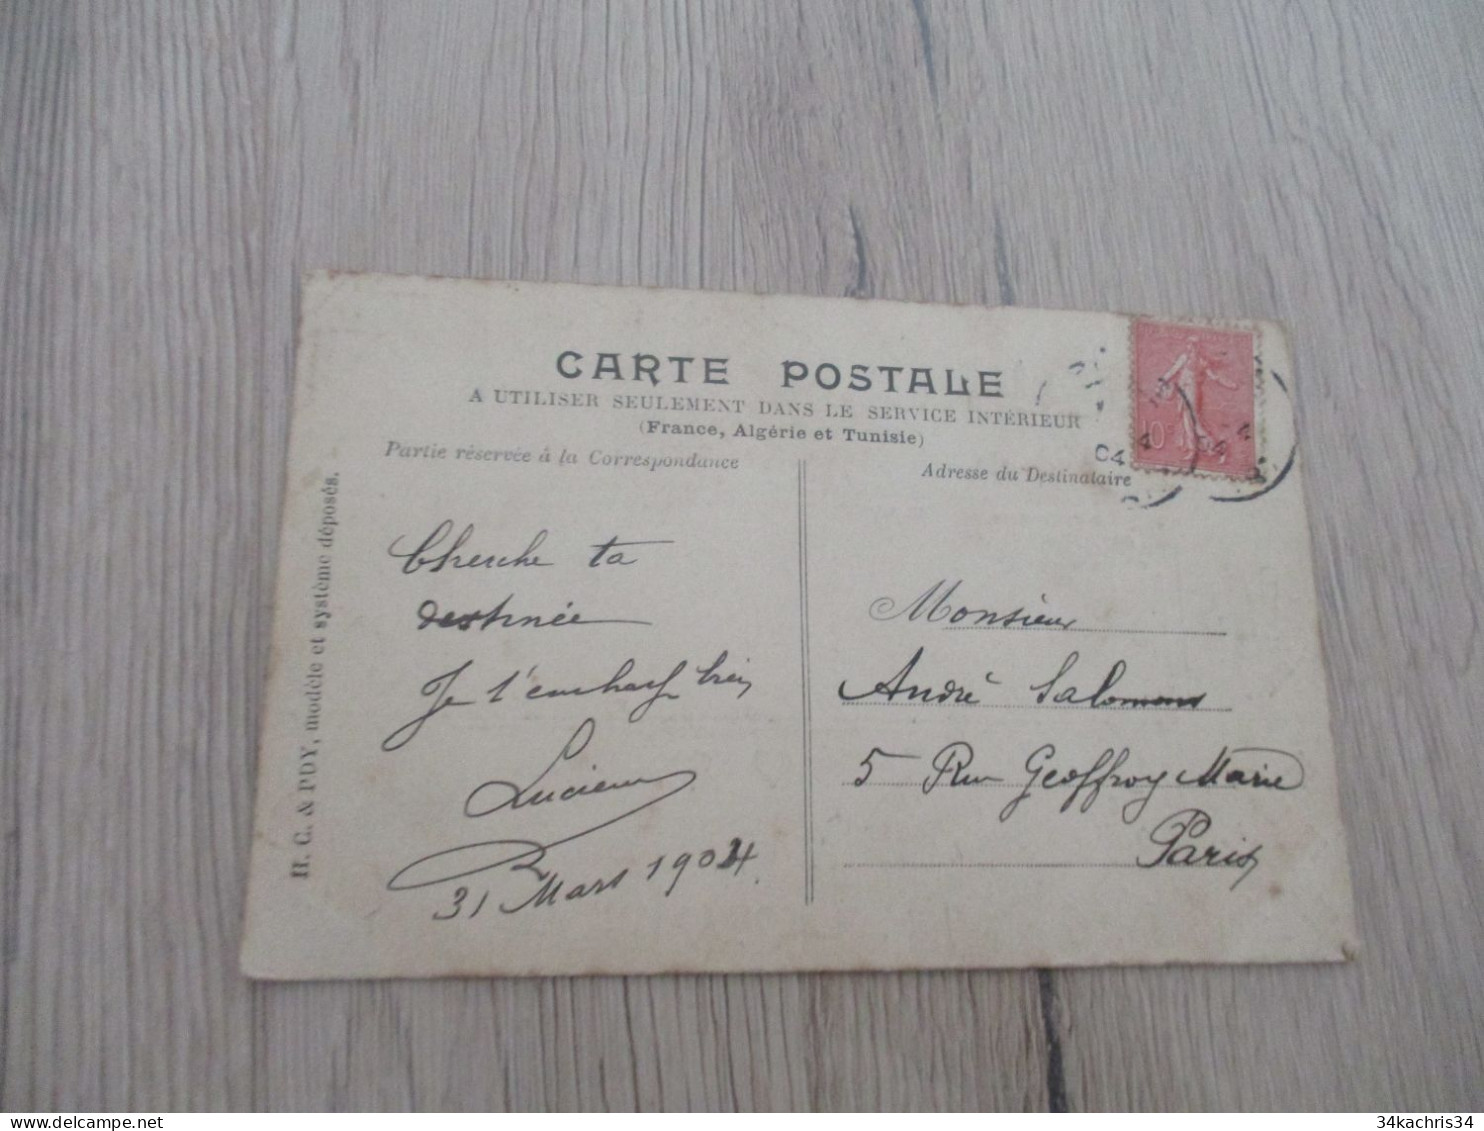 CARTE POSTALE
A UTILISER SEULEMENT DANS LE SERVICE INTÉRIEUR
(France, Algérie et Tunisie)
Partie réservée à la Correspondance
Adresse du Destinataire
H. C. & PDY, modèle et système déposés.
Cherche ta
destinée
Je t'embrasse bien
Lucien
31 Mars 1904
Monsieur
André Salomons
5 Rue Geoffroy Marie
Paris
10
04
Fièrement propulsé par Delcampe.net
34kachris34